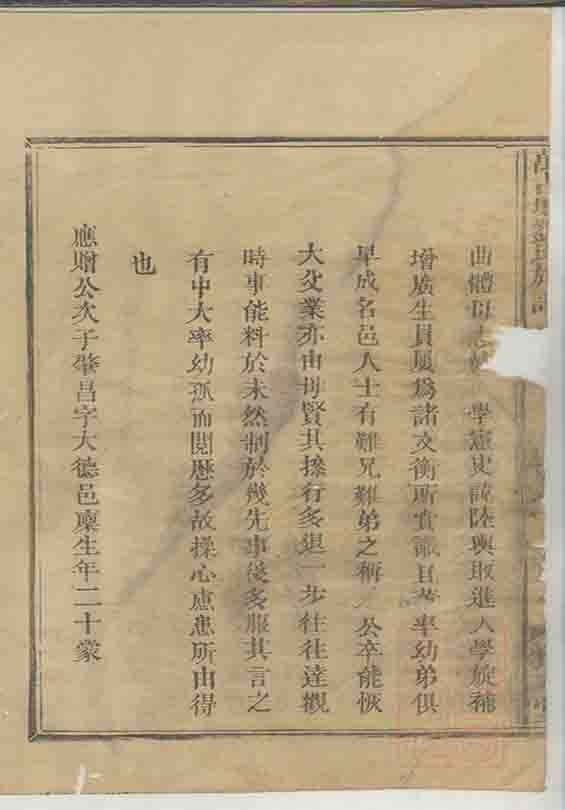 曲體母志 學憲史試陸與取進入學旋補
增廣生員屢為諸文衡所賞識且首率幼弟俱
早成名邑人士有難兄難弟之稱 公卒能恢
大父業亦由母賢其操行多退一步往往達觀
時事能料於未然制於幾先事後多服其言之
有中大率幼孤而閱歷多故操心慮患所由得
也
應贈公次子肇昌字大德邑廩生年二十蒙